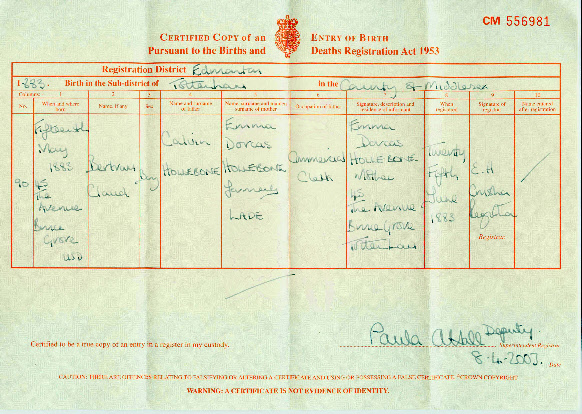 CM 556981
CERTIFIED COPY OF AN ENTRY OF BIRTH
Pursuant to the Births and Deaths Registration Act 1953
Registration District Edmonton
1883. Birth in the Sub-district of Tottenham in the County of Middlesex
Columns: 1 2 3 4 5 6 7 8 9 10
No. When and where born Name, if any Sex Name and surname of father Name, surname and maiden surname of mother Occupation of father Signature, description and residence of informant When registered Signature of registrar Name entered after registration
90
Fifteenth
May
1883
45
The
Avenue
Bruce
Grove
USD
Bertram
Claud
Boy
HOLLEBONE
Emma
Dorcas
HOLLEBONE
formerly
LADE
Commercial
Clerk
Emma
Dorcas
HOLLEBONE
Mother
45
The Avenue
Bruce Grove
Tottenham
Twenty
June
1883
E. H
Registrar
Registrar
Certified to be a true copy of an entry in a register in my custody.
Paula Deputy
Superintendent Registrar
8-4-2003. Date
CAUTION: THERE ARE OFFENCES RELATING TO FALSIFYING OR ALTERING A CERTIFICATE AND USING OR POSSESSING A FALSE CERTIFICATE. ©CROWN COPYRIGHT
WARNING: A CERTIFICATE IS NOT EVIDENCE OF IDENTITY.